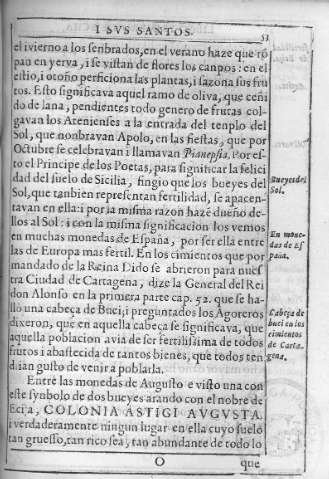 I SVS SANTOS.
53
el ivierno a los senbrados, en el verano haze que rõ
pan en yerva, i se vistan de flores los canpos: en el
estio, i otoño perficiona las plantas, i sazona sus fru
tos. Esto significava aquel ramo de oliva, que ceñi
do de lana, pendientes todo genero de frutas col-
gavan los Atenienses a la entrada del tenplo del
Sol, que nonbravan Apolo, en las fiestas, que por
Octubre se celebravan i llamavan Pianepsia. Por es-
to el Principe de los Poetas, para significar la felici
dad del suelo de Sicilia, fingio que los bueyes del
Sol, que tanbien representan fertilidad, se apacen-
tavan en ella: i por la misma razon hazẽ dueño de-
llos al Sol: i con la misma significacion los vemos
en muchas monedas de España, por ser ella entre
las de Europa mas fertil. En los cimientos que por
mandado de la Reina Dido se abrieron para nues
tra Ciudad de Cartagena, dize la General del Rei
don Alonso en la primera parte cap. 52. que se ha-
llo una cabeça de Buei; i preguntados los Agoreros
dixeron, que en aquella cabeça se significava, que
aquella poblacion avia de ser fertilissima de todos
frutos i abastecida de tantos bienes, que todos ten
drian gusto de venir a poblarla.
Entre las monedas de Augusto e visto una con
este synbolo de dos bueyes arando con el nonbre de
Ecija, COLONIA ASTIGI AVGVSTA.
i verdaderamente ningun lugar en ella cuyo suelo
tan gruesso, tan rico sea, tan abundante de todo lo
O
que
Bueyes del
Sol.
En mone-
das de Es
paña.
Cabeça de
buei en los
cimientos
de Carta-
gena.